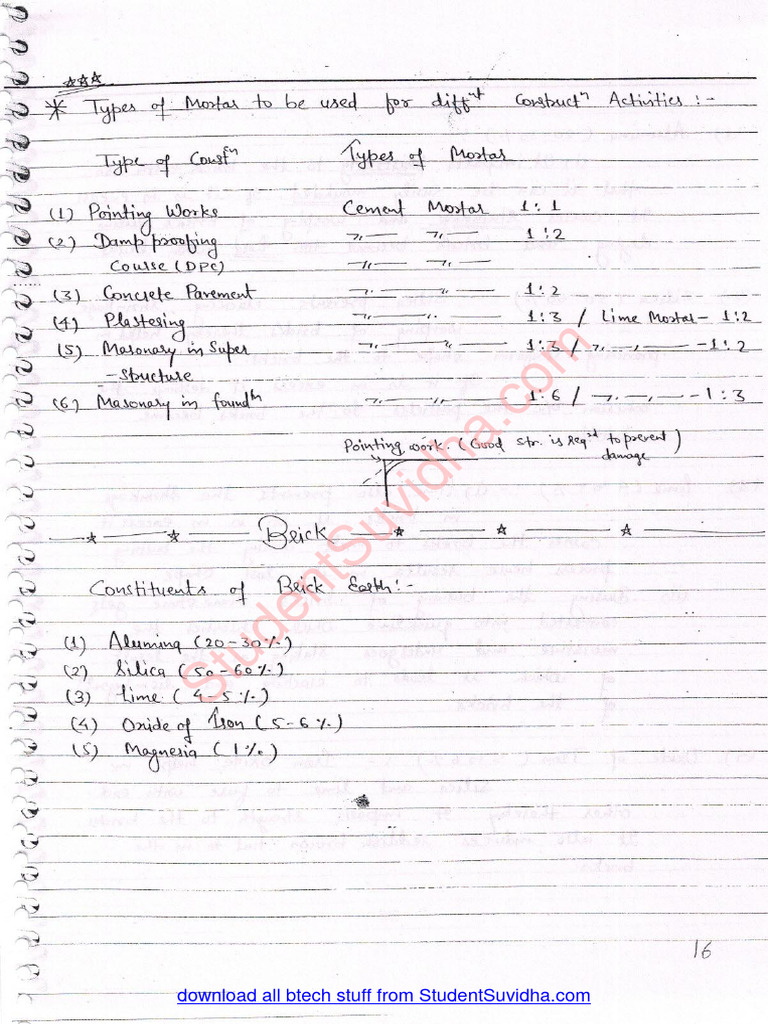 ***
* Types of Mortar to be used for diffnt Constructn Activities :-
Type of Constn Types of Mortar
(1) Pointing Works Cement Mortar 1:1
(2) Damp proofing —〃— —〃— 1:2
Course (DPC) —〃— —〃—
(3) Concrete Pavement —〃— —〃— 1:2
(4) Plastering —〃— —〃— 1:3 / Lime Mortar - 1:2
(5) Masonary in Super —〃— —〃— 1:3 / —〃— —〃— - 1:2
- Structure
(6) Masonary in foundn —〃— —〃— 1:6 / —〃— —〃— - 1:3
Pointing work. (Good Str. is Reqrd to prevent)
damage
Brick
Constituents of Brick Earth:-
(1) Alumina (20-30%)
(2) Silica (50-60%)
(3) Lime (4-5%)
(4) Oxide of Iron (5-6%)
(5) Magnesia (1%)
StudentSuvidha.com
16
download all btech stuff from StudentSuvidha.com